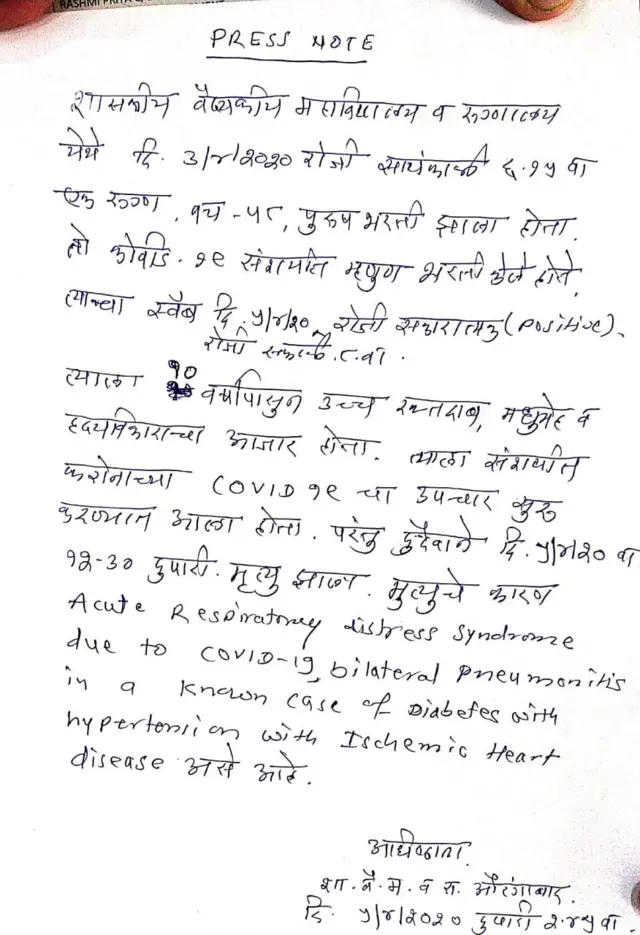 RASHMI PRIYA &
PRESS NOTE
शासकीय वैद्यकीय महाविद्यालय व रुग्णालय
येथे दि. ३/४/२०२० रोजी सायंकाळी ६.१५ वा
एक रुग्ण, वय - ५८, पुरुष भरती झाला होता.
तो कोवीड. १९ संशयीत म्हणुण भरती केले होते.
त्याच्या स्वॅब दि. ५/४/२० रोजी सकारात्मक (Positive).
रोजी सकाळी. ८ वा.
त्याला १० वर्षापासुन उच्च रक्तदाब, मधुमेह व
हृदयविकाराचा आजार होता. त्याला संशयीत
करोनाच्या COVID १९ चा उपचार सुरु
करण्यात आला होता. परंतु दुर्दैवाने दि. ५/४/२० वा
१२-३० दुपारी. मृत्यु झाला. मृत्युचे कारण
Acute Respiratory distress syndrome
due to COVID-19, bilateral Pneumonitis
in a known case of Diabetes with
hypertension with Ischemic Heart
disease असे आहे.
शा. वै. म. व रु. औरंगाबाद.
दि. ५/४/२०२० दुपारी २.४५ वा.